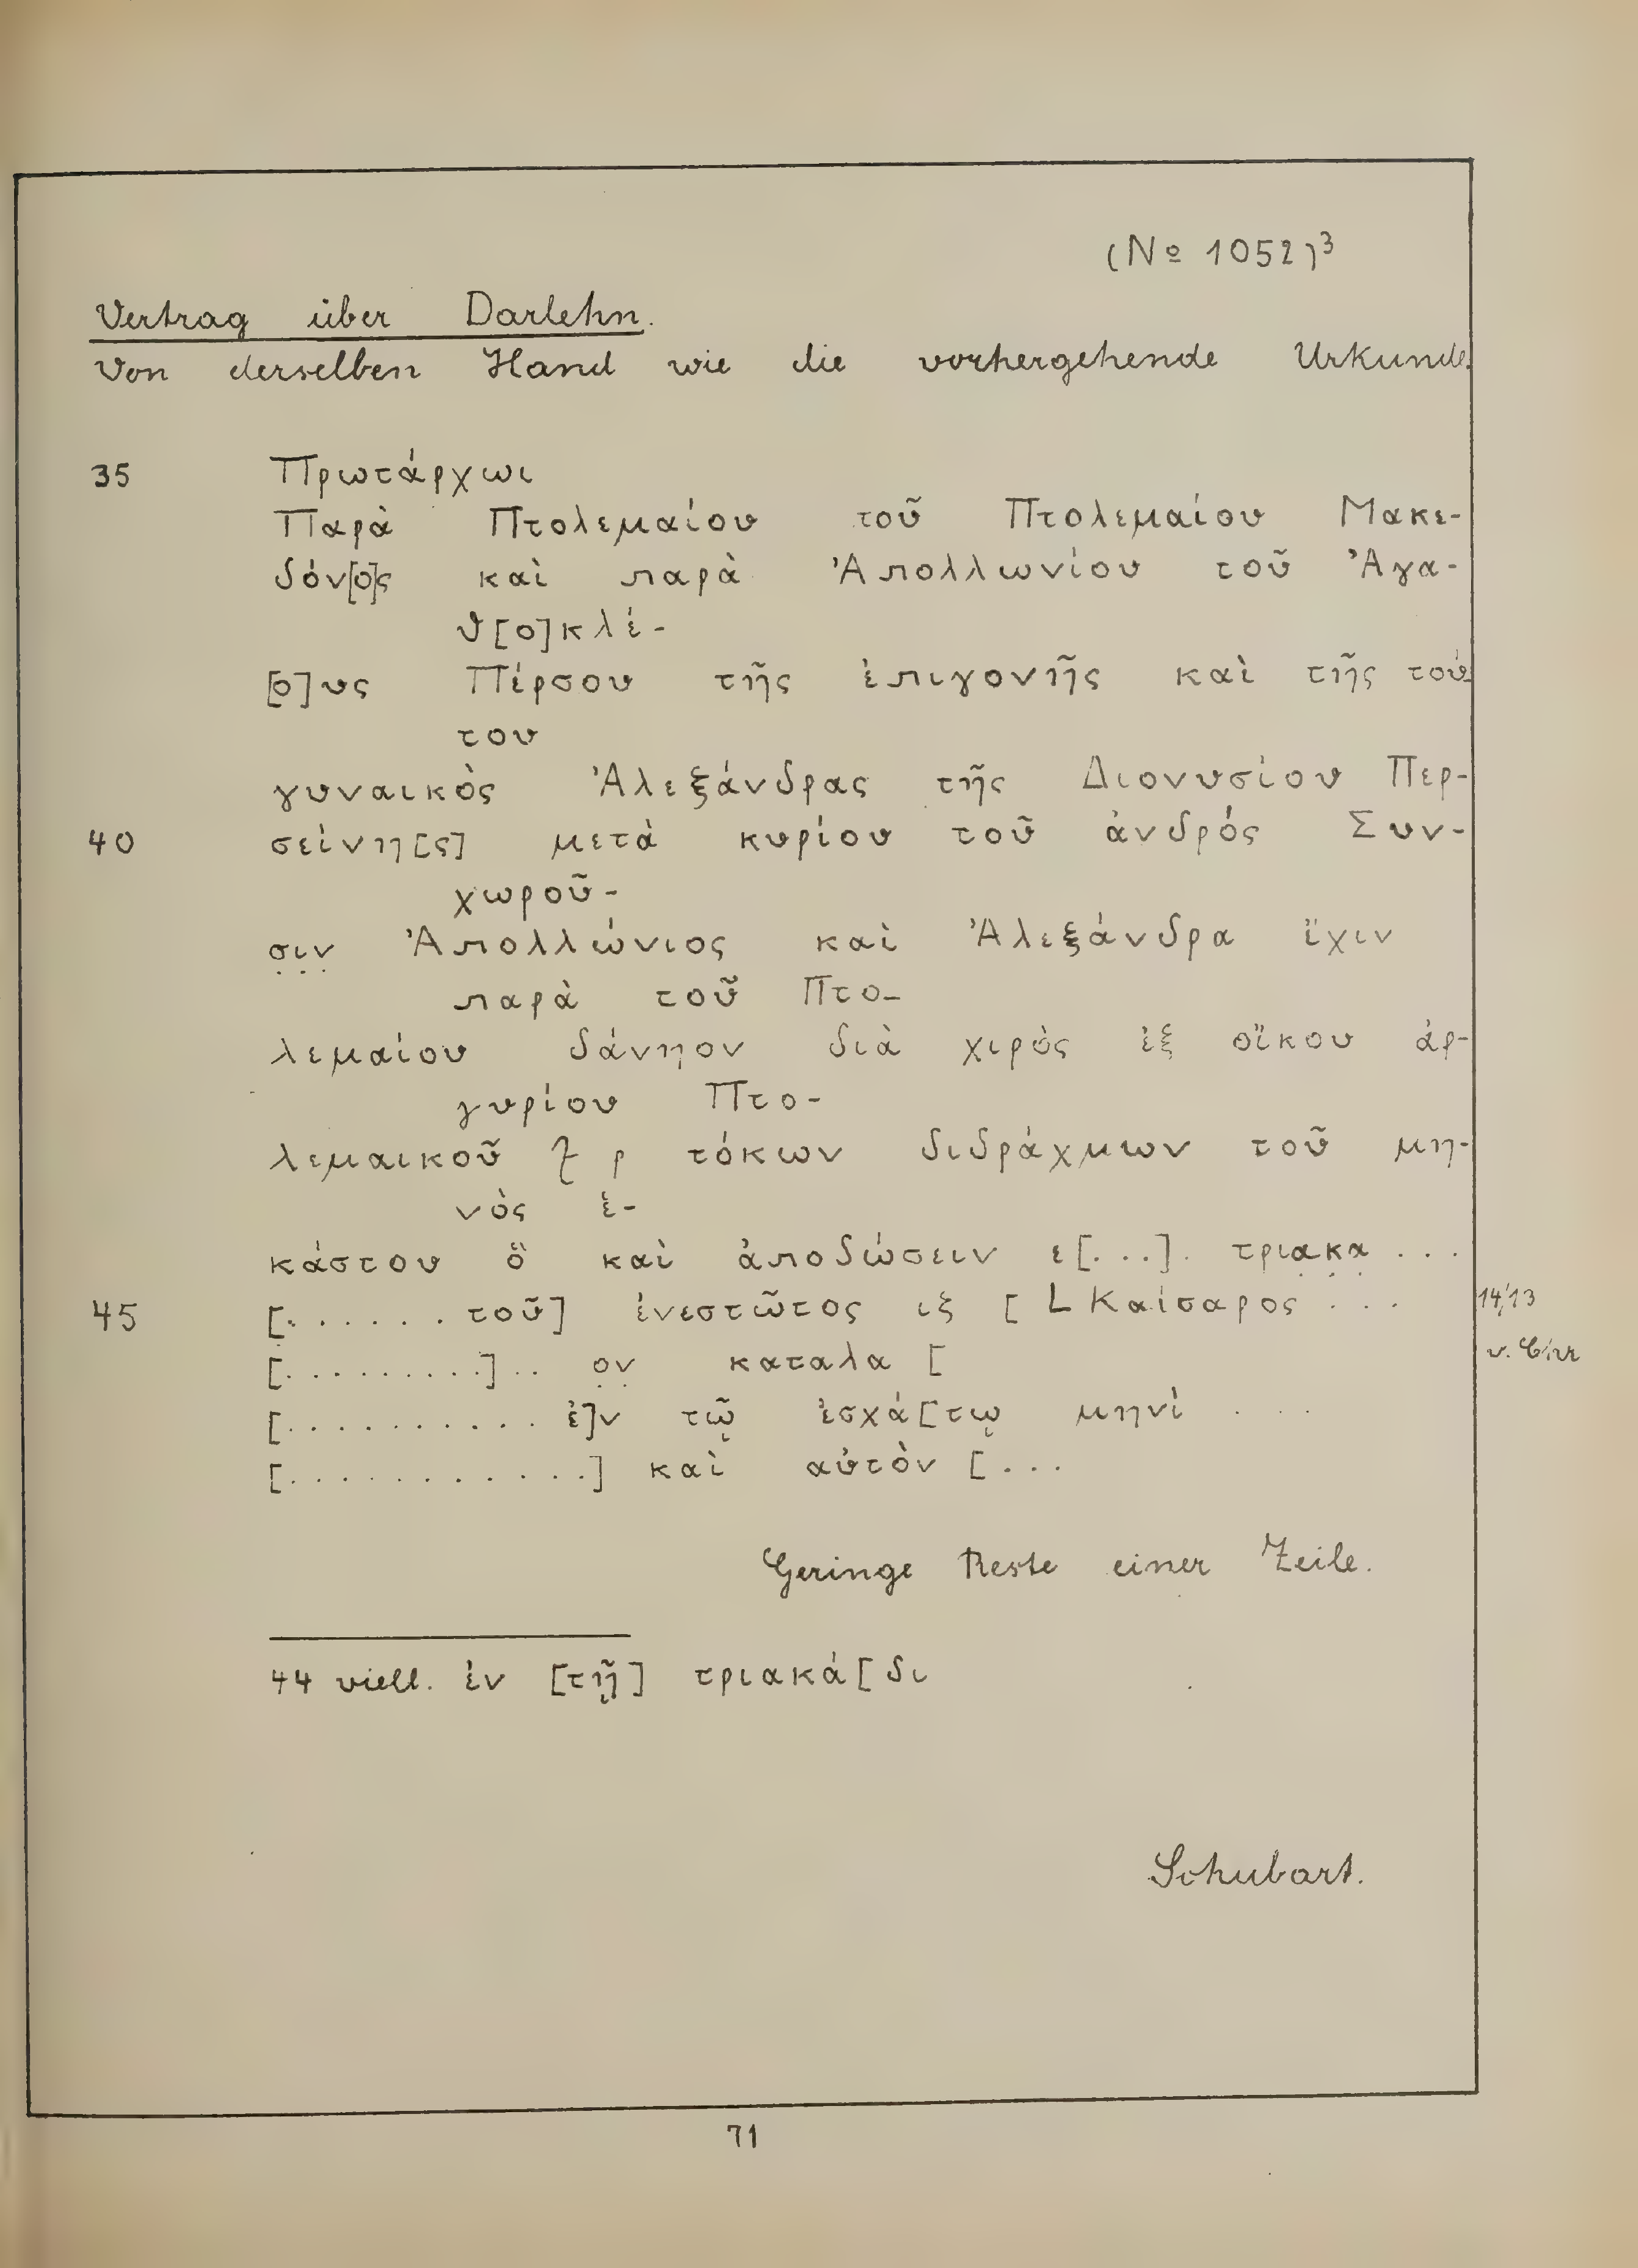 (Nº 1052)³
Vertrag über Darlehn.
Von derselben Hand wie die vorhergehende Urkunde.
35 Πρωτάρχωι
Παρὰ Πτολεμαίου τοῦ Πτολεμαίου Μακε-
δόν[ο]ς καὶ παρὰ Ἀπολλωνίου τοῦ Ἀγα-
θ[ο]κλέ-
[ο]υς Πέρσου τῆς ἐπιγονῆς καὶ τῆς τού-
του
γυναικὸς Ἀλεξάνδρας τῆς Διονυσίου Περ-
40 σείνη[ς] μετὰ κυρίου τοῦ ἀνδρός Συν-
χωροῦ-
σ̣ι̣ν̣ Ἀπολλώνιος καὶ Ἀλεξάνδρα ἔχιν
παρὰ τοῦ Πτο-
λεμαίου δάνηον διὰ χιρὸς ἐξ οἴκου ἀρ-
γυρίου Πτο-
λεμαικοῦ ⟆ ρ τόκων διδράχμων τοῦ μη-
νὸς ἑ-
κάστου ὃ καὶ ἀποδώσειν ε[...]. τρια̣κ̣α̣ ...
45 [...... τοῦ] ἐνεστῶτος ιξ [ L Καίσαρος ... 14/13
[.........].. ο̣ν̣ καταλα [ v. Chr
[.......... ἐ]ν τῷ ἐσχά[τῳ μηνὶ ...
[...........] καὶ αὐτὸν [...
Geringe Reste einer Zeile.
44 viell. ἐν [τῇ] τριακά[δι
Schubart.
71